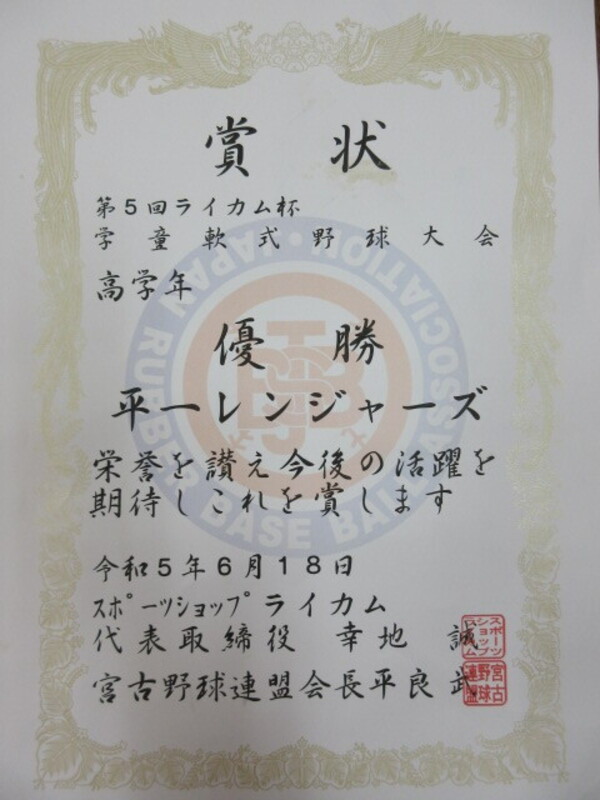 賞状
第5回ライカム杯
学童軟式野球大会
高学年
優勝
平一レンジャーズ
栄誉を讃え今後の活躍を
期待しこれを賞します
令和5年6月18日
スポーツショップライカム
代表取締役 幸地 誠
宮古野球連盟会長平良 武
スポーツショップライカム
宮古野球連盟
JAPAN RUBBER BASE BALL ASSOCIATION
JSBB